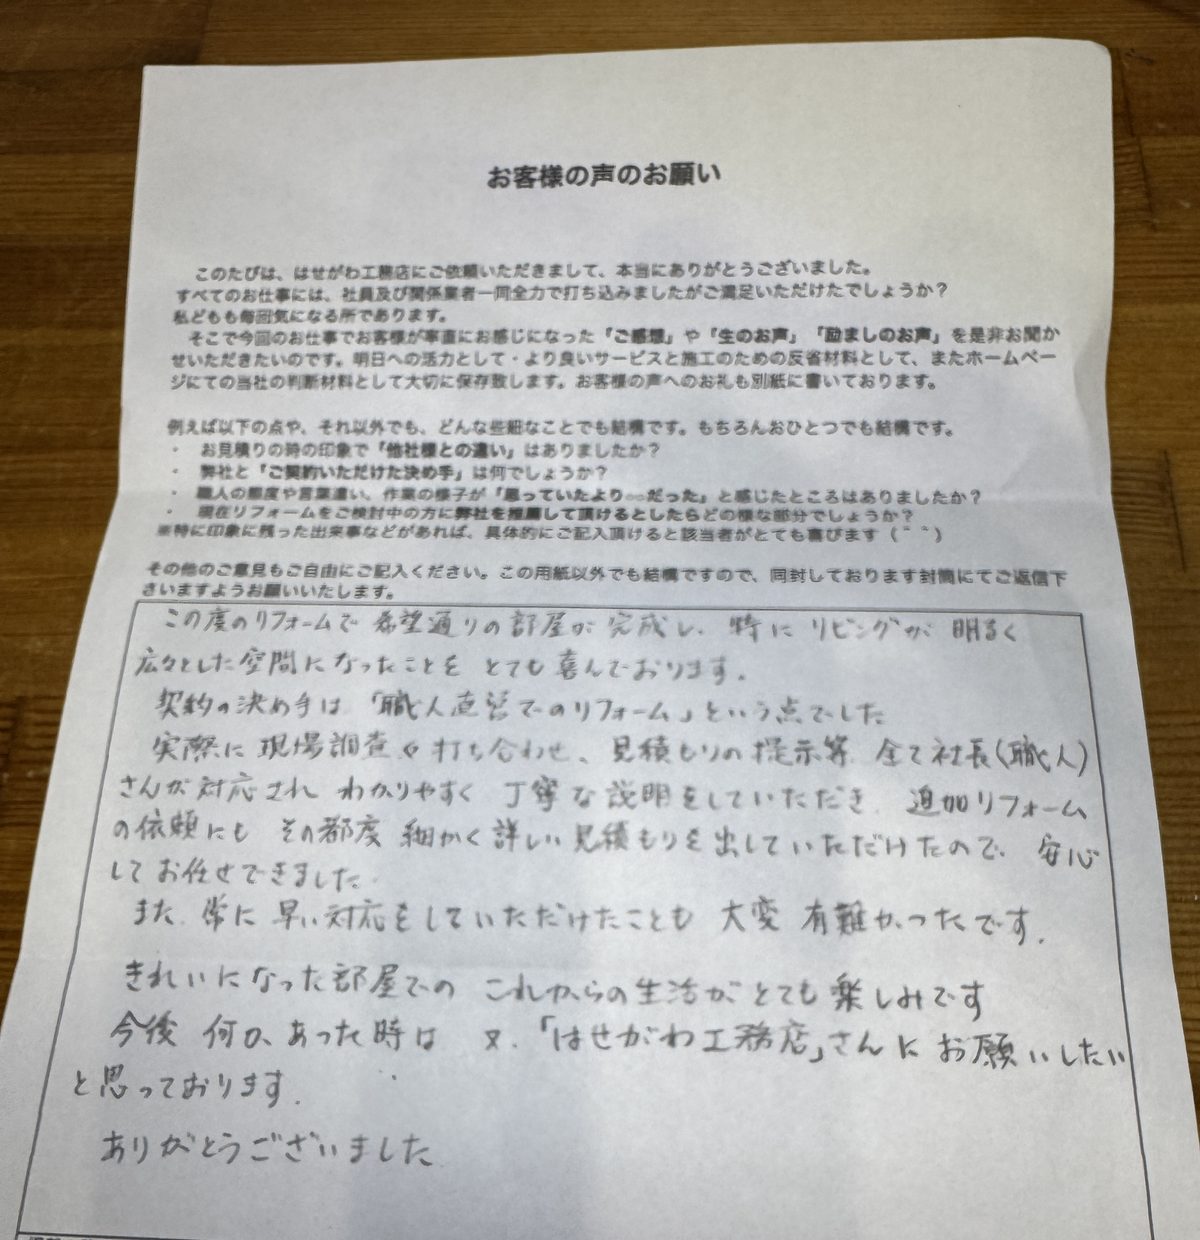 お客様の声のお願い
このたびは、はせがわ工務店にご依頼いただきまして、本当にありがとうございました。
すべてのお仕事には、社員及び関係業者一同全力で打ち込みましたがご満足いただけたでしょうか？
私どもも毎回気になる所であります。
そこで今回のお仕事でお客様が率直にお感じになった「ご感想」や「生のお声」「励ましのお声」を是非お聞か
せいただきたいのです。明日への活力として・より良いサービスと施工のための反省材料として、またホームペー
ジにての当社の判断材料として大切に保存致します。お客様の声へのお礼も別紙に書いております。
例えば以下の点や、それ以外でも、どんな些細なことでも結構です。もちろんおひとつでも結構です。
・ お見積りの時の印象で「他社様との違い」はありましたか？
・ 弊社と「ご契約いただけた決め手」は何でしょうか？
・ 職人の態度や言葉遣い、作業の様子が「思っていたより○○だった」と感じたところはありましたか？
・ 現在リフォームをご検討中の方に弊社を推薦して頂けるとしたらどの様な部分でしょうか？
※特に印象に残った出来事などがあれば、具体的にご記入頂けると該当者がとても喜びます（＾＾）
その他のご意見もご自由にご記入ください。この用紙以外でも結構ですので、同封しております封筒にてご返信下
さいますようお願いいたします。
この度のリフォームで 希望通りの部屋が 完成し、特に リビングが 明るく
広々とした空間になったことを とても 喜んでおります。
契約の決め手は「職人直営でのリフォーム」という点でした
実際に 現場調査や打ち合わせ、見積もりの提示等 全て社長(職人)
さんが対応され わかりやすく 丁寧な説明をしていただき 追加リフォーム
の依頼にも その都度 細かく詳しい見積もりを出していただけたので、安心
してお任せできました。
また 常に 早い対応をしていただけたことも 大変 有難かったです。
きれいになった部屋での これからの生活がとても楽しみです
今後 何か、あった時は 又、「はせがわ工務店」さんに お願いしたい
と思っております。
ありがとうございました